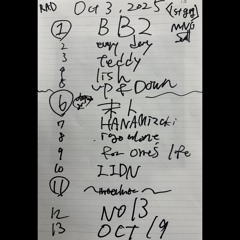 RAD Oct 3, 2025 (1st gig)
① BB2
2 every day
3 teddy
4 lish
5 UP & Down
⑥ 末ト
7 HANAMizaki
8
9 for one's life
⑩ LIDN
⑪
12 NO 13
13 OCT 19